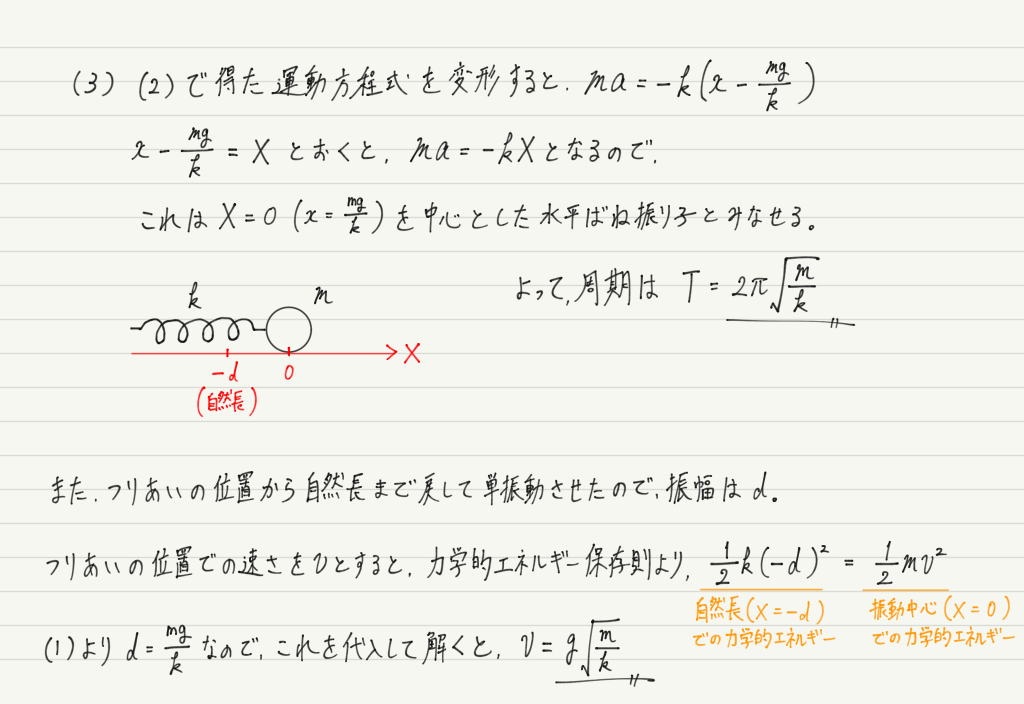 (3) (2)で得た運動方程式を変形すると, ma = -k(x - mg/k)
x - mg/k = X とおくと, ma = -kX となるので,
これは X = 0 (x = mg/k) を中心とした水平ばね振り子とみなせる。
よって, 周期は T = 2π√(m/k)
k m
X
-d 0
(自然長)
また, つりあいの位置から自然長まで戻して単振動させたので, 振幅は d。
つりあいの位置での速さをvとすると, 力学的エネルギー保存則より, 1/2 k(-d)² = 1/2 mv²
自然長(X = -d) 振動中心(X = 0)
での力学的エネルギー での力学的エネルギー
(1)より d = mg/k なので, これを代入して解くと, v = g√(m/k)